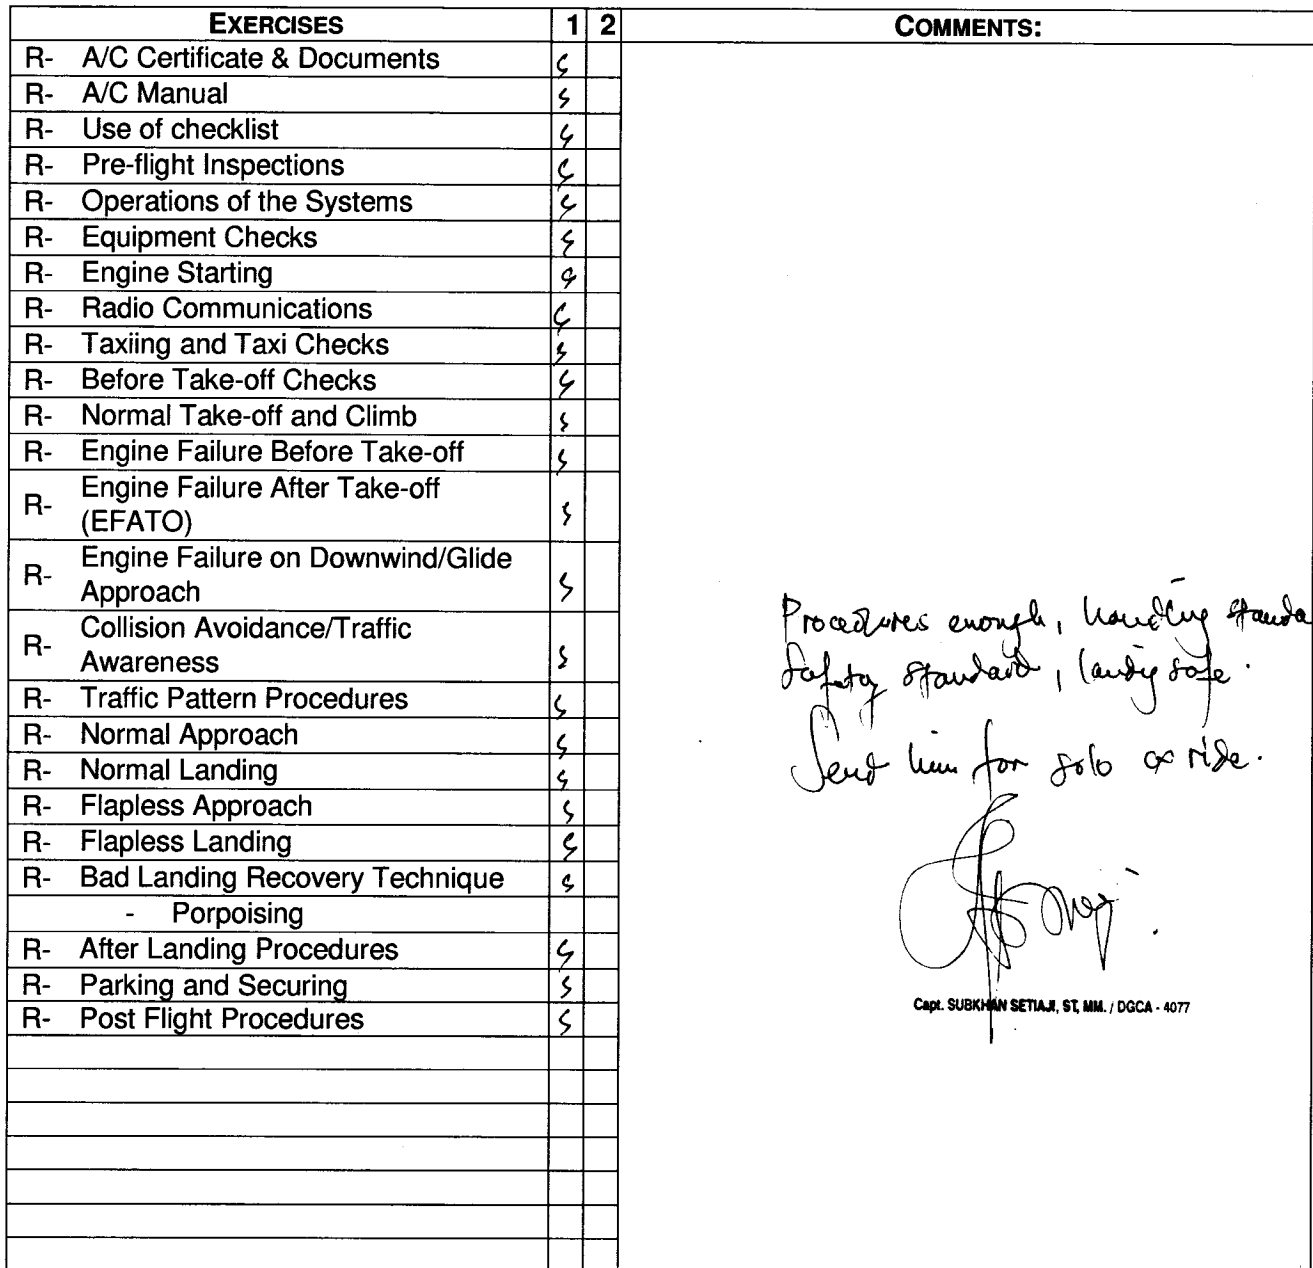 EXERCISES 1 2 COMMENTS:
R- A/C Certificate & Documents S
R- A/C Manual S
R- Use of checklist S
R- Pre-flight Inspections S
R- Operations of the Systems S
R- Equipment Checks S
R- Engine Starting S
R- Radio Communications S
R- Taxiing and Taxi Checks S
R- Before Take-off Checks S
R- Normal Take-off and Climb S
R- Engine Failure Before Take-off S
R- Engine Failure After Take-off
(EFATO) S
R- Engine Failure on Downwind/Glide
Approach S
R- Collision Avoidance/Traffic
Awareness S
R- Traffic Pattern Procedures S
R- Normal Approach S
R- Normal Landing S
R- Flapless Approach S
R- Flapless Landing S
R- Bad Landing Recovery Technique S
- Porpoising
R- After Landing Procedures S
R- Parking and Securing S
R- Post Flight Procedures S
Procedures enough, handling standa
Safety standard, landing safe.
Send him for solo ride.
Capt. SUBKHAN SETIAJI, ST, MM. / DGCA - 4077